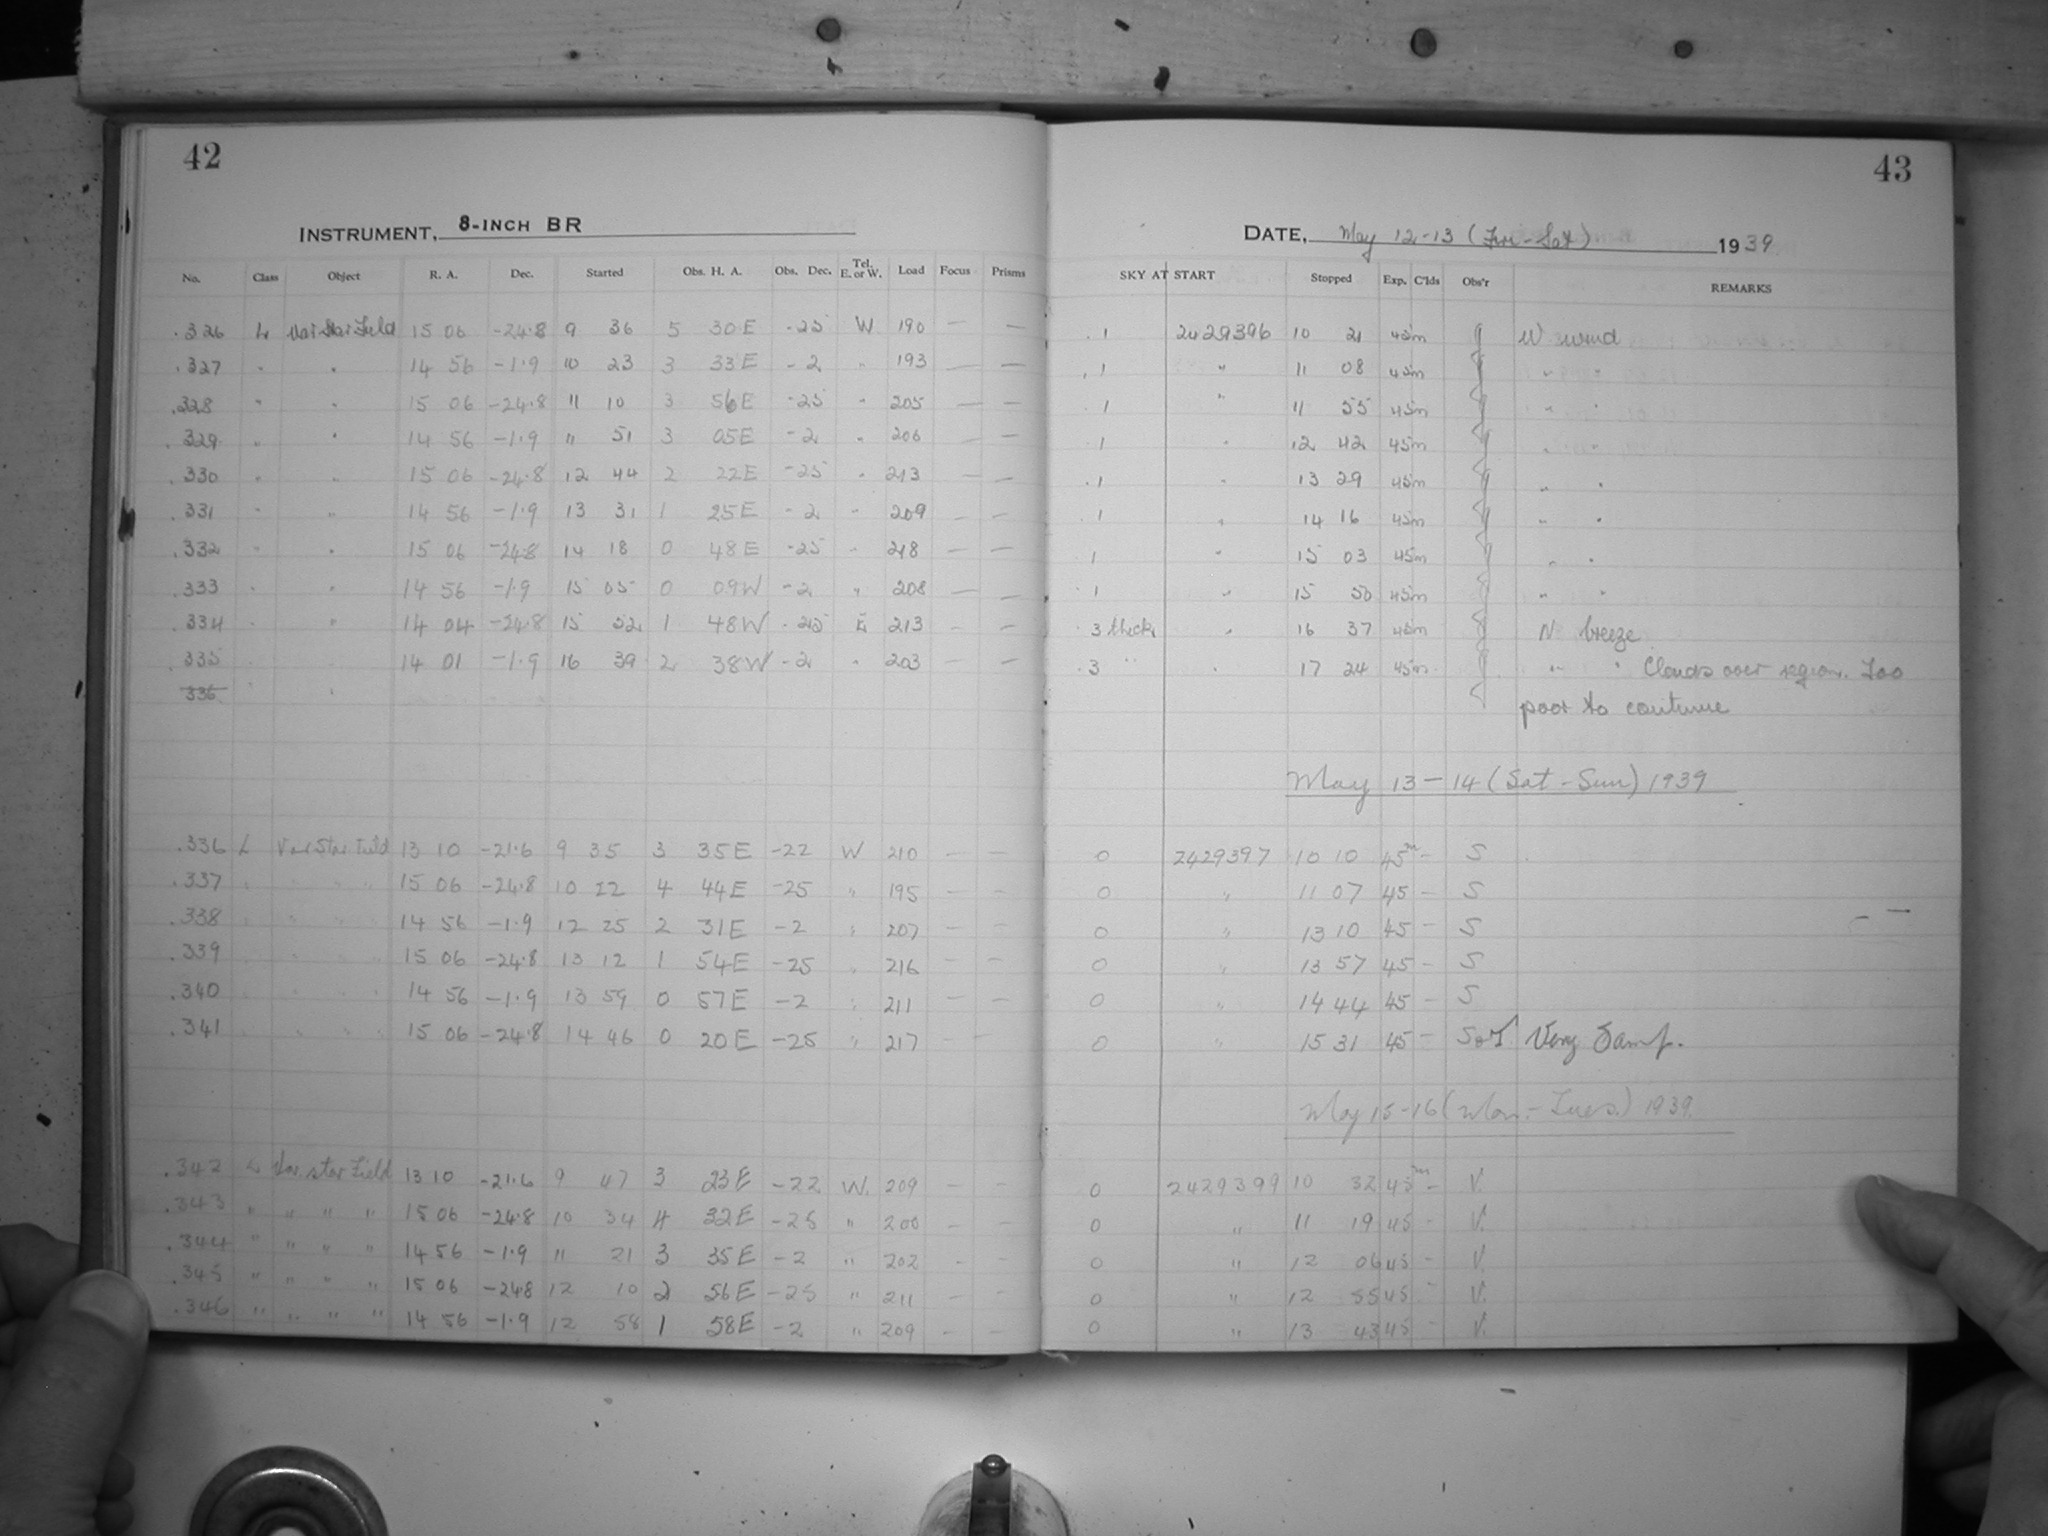 42
INSTRUMENT, 8-INCH BR
No. Class Object R. A. Dec. Started Obs. H. A. Obs. Dec. Tel. E. or W. Load Focus Prisms
.326 L Var Star Field 15 06 -24.8 9 36 5 30E -25 W 190 — —
.327 " " 14 56 -1.9 10 23 3 33E -2 " 193 — —
.328 " " 15 06 -24.8 11 10 3 56E -25 " 205 — —
.329 " " 14 56 -1.9 11 51 3 05E -2 " 206 — —
.330 " " 15 06 -24.8 12 44 2 22E -25 " 213 — —
.331 " " 14 56 -1.9 13 31 1 25E -2 " 209 — —
.332 " " 15 06 -24.8 14 18 0 48E -25 " 218 — —
.333 " " 14 56 -1.9 15 05 0 09W -2 " 208 — —
.334 " " 14 04 -24.8 15 52 1 48W -25 E 213 — —
.335 14 01 -1.9 16 39 2 38W -2 " 203 — —
336 " "
.336 L Var Star Field 13 10 -21.6 9 35 3 35E -22 W 210 — —
.337 " " " " 15 06 -24.8 10 22 4 44E -25 " 195 — —
.338 " " " " 14 56 -1.9 12 25 2 31E -2 " 207 — —
.339 " " " " 15 06 -24.8 13 12 1 54E -25 " 216 — —
.340 " " " " 14 56 -1.9 13 59 0 57E -2 " 211 — —
.341 " " " " 15 06 -24.8 14 46 0 20E -25 " 217 — —
.342 L Var. star Field 13 10 -21.6 9 47 3 23E -22 W. 209 — —
.343 " " " " 15 06 -24.8 10 34 4 32E -25 " 200 — —
.344 " " " " 14 56 -1.9 11 21 3 35E -2 " 202 — —
.345 " " " " 15 06 -24.8 12 10 2 56E -25 " 211 — —
.346 " " " " 14 56 -1.9 12 58 1 58E -2 " 209 — —
43
DATE, May 12-13 (Fri-Sat) 1939
SKY AT START Stopped Exp. C'lds Obs'r REMARKS
1 2429396 10 21 45m W wind
1 " 11 08 45m " "
1 " 11 55 45m " "
1 " 12 42 45m " "
1 " 13 29 45m " "
1 " 14 16 45m " "
1 " 15 03 45m " "
1 " 15 50 45m " "
3 thick " 16 37 45m N breeze
3 " " 17 24 45m " " Clouds over region. Too
poor to continue
May 13-14 (Sat-Sun) 1939
0 2429397 10 10 45m — S
0 " 11 07 45 — S
0 " 13 10 45 — S
0 " 13 57 45 — S
0 " 14 44 45 — S
0 " 15 31 45 — Very Damp.
May 15-16 (Mon.-Tues.) 1939.
0 2429399 10 32 45m — V.
0 " 11 19 45 — V.
0 " 12 06 45 — V.
0 " 12 55 45 — V.
0 " 13 43 45 — V.